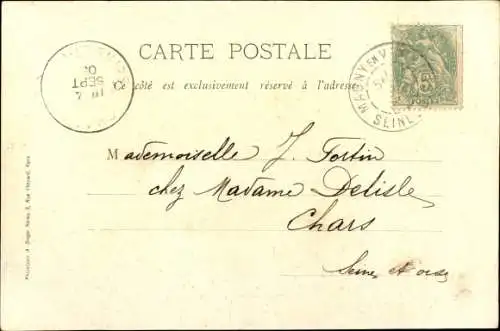 CARTE POSTALE
Ce côté est exclusivement réservé à l'adresse
MAGNY EN V
SEINE
5
4
SEPT
Mademoiselle J. Fortin
chez Madame Delisle
Chars
Seine et oise